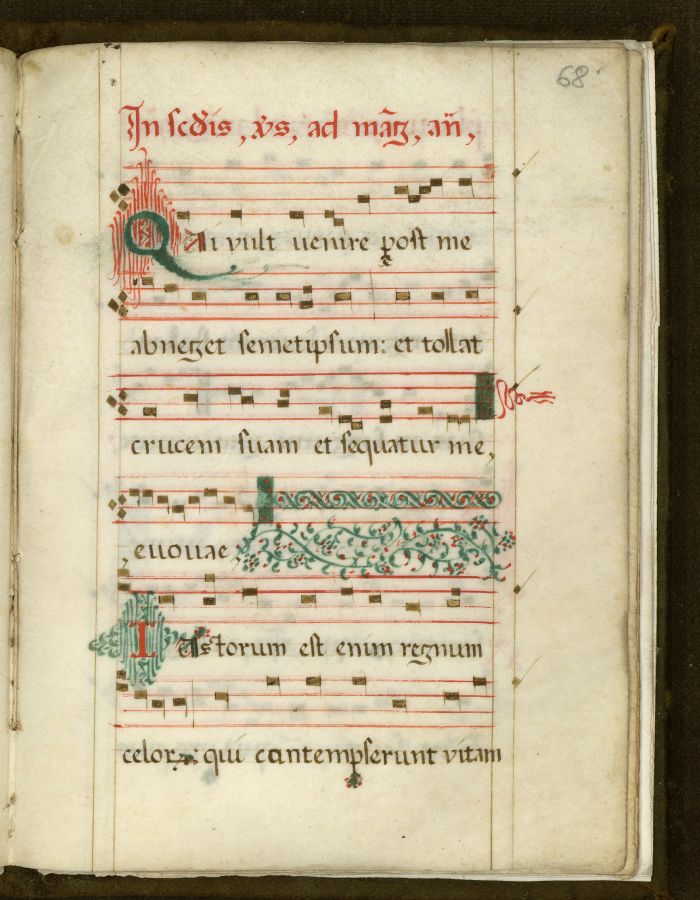 68
In scdis, xp̄s, ad māg, añ,
Qui vult uenire post me
abneget semetipsum: et tollat
crucem suam et sequatur me,
, euouae,
Istorum est enim regnum
celorꝝ: qui contempserunt vitam